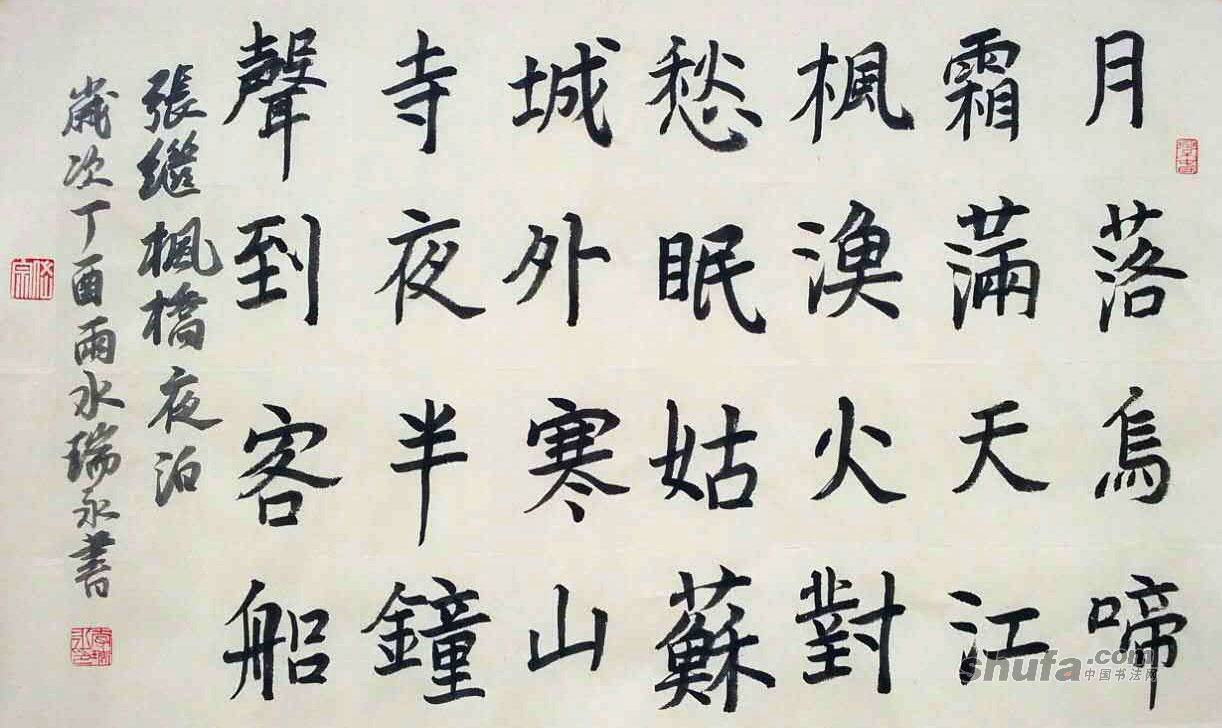 月落烏啼
霜滿天江
楓漁火對
愁眠姑蘇
城外寒山
寺夜半鐘
聲到客船
張繼楓橋夜泊
歲次丁酉雨水瑞永書
shufa.com
中国书法网